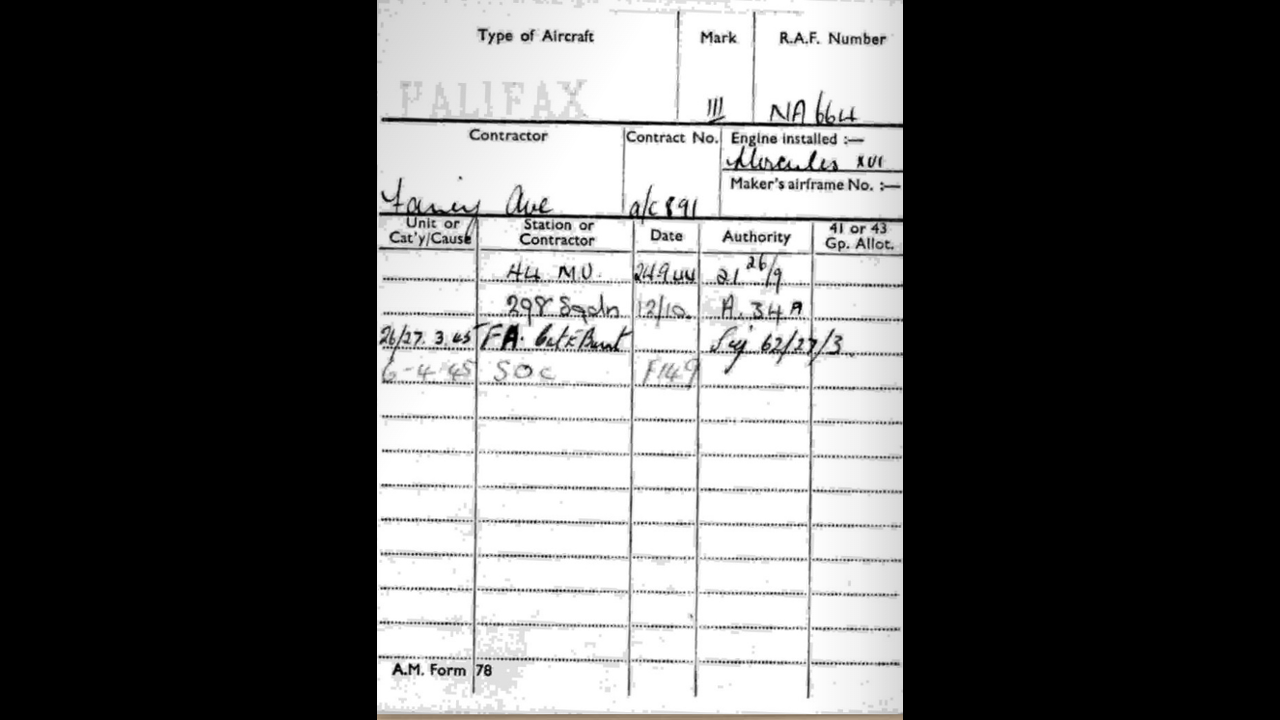 Type of Aircraft Mark R.A.F. Number
HALIFAX III NA 664
Contractor Contract No. Engine installed :—
Hercules XVI
Maker's airframe No. :—
Fairey Ave a/c 891
Unit or Cat'y/Cause Station or Contractor Date Authority 41 or 43 Gp. Allot.
44 M.U. 24.9.44 21 26/9
298 Sqdn 12/10. A. 34 A
26/27. 3.45 FA. Cat E Burnt Sig 62/27/3.
6-4-45 SOC F149
A.M. Form 78